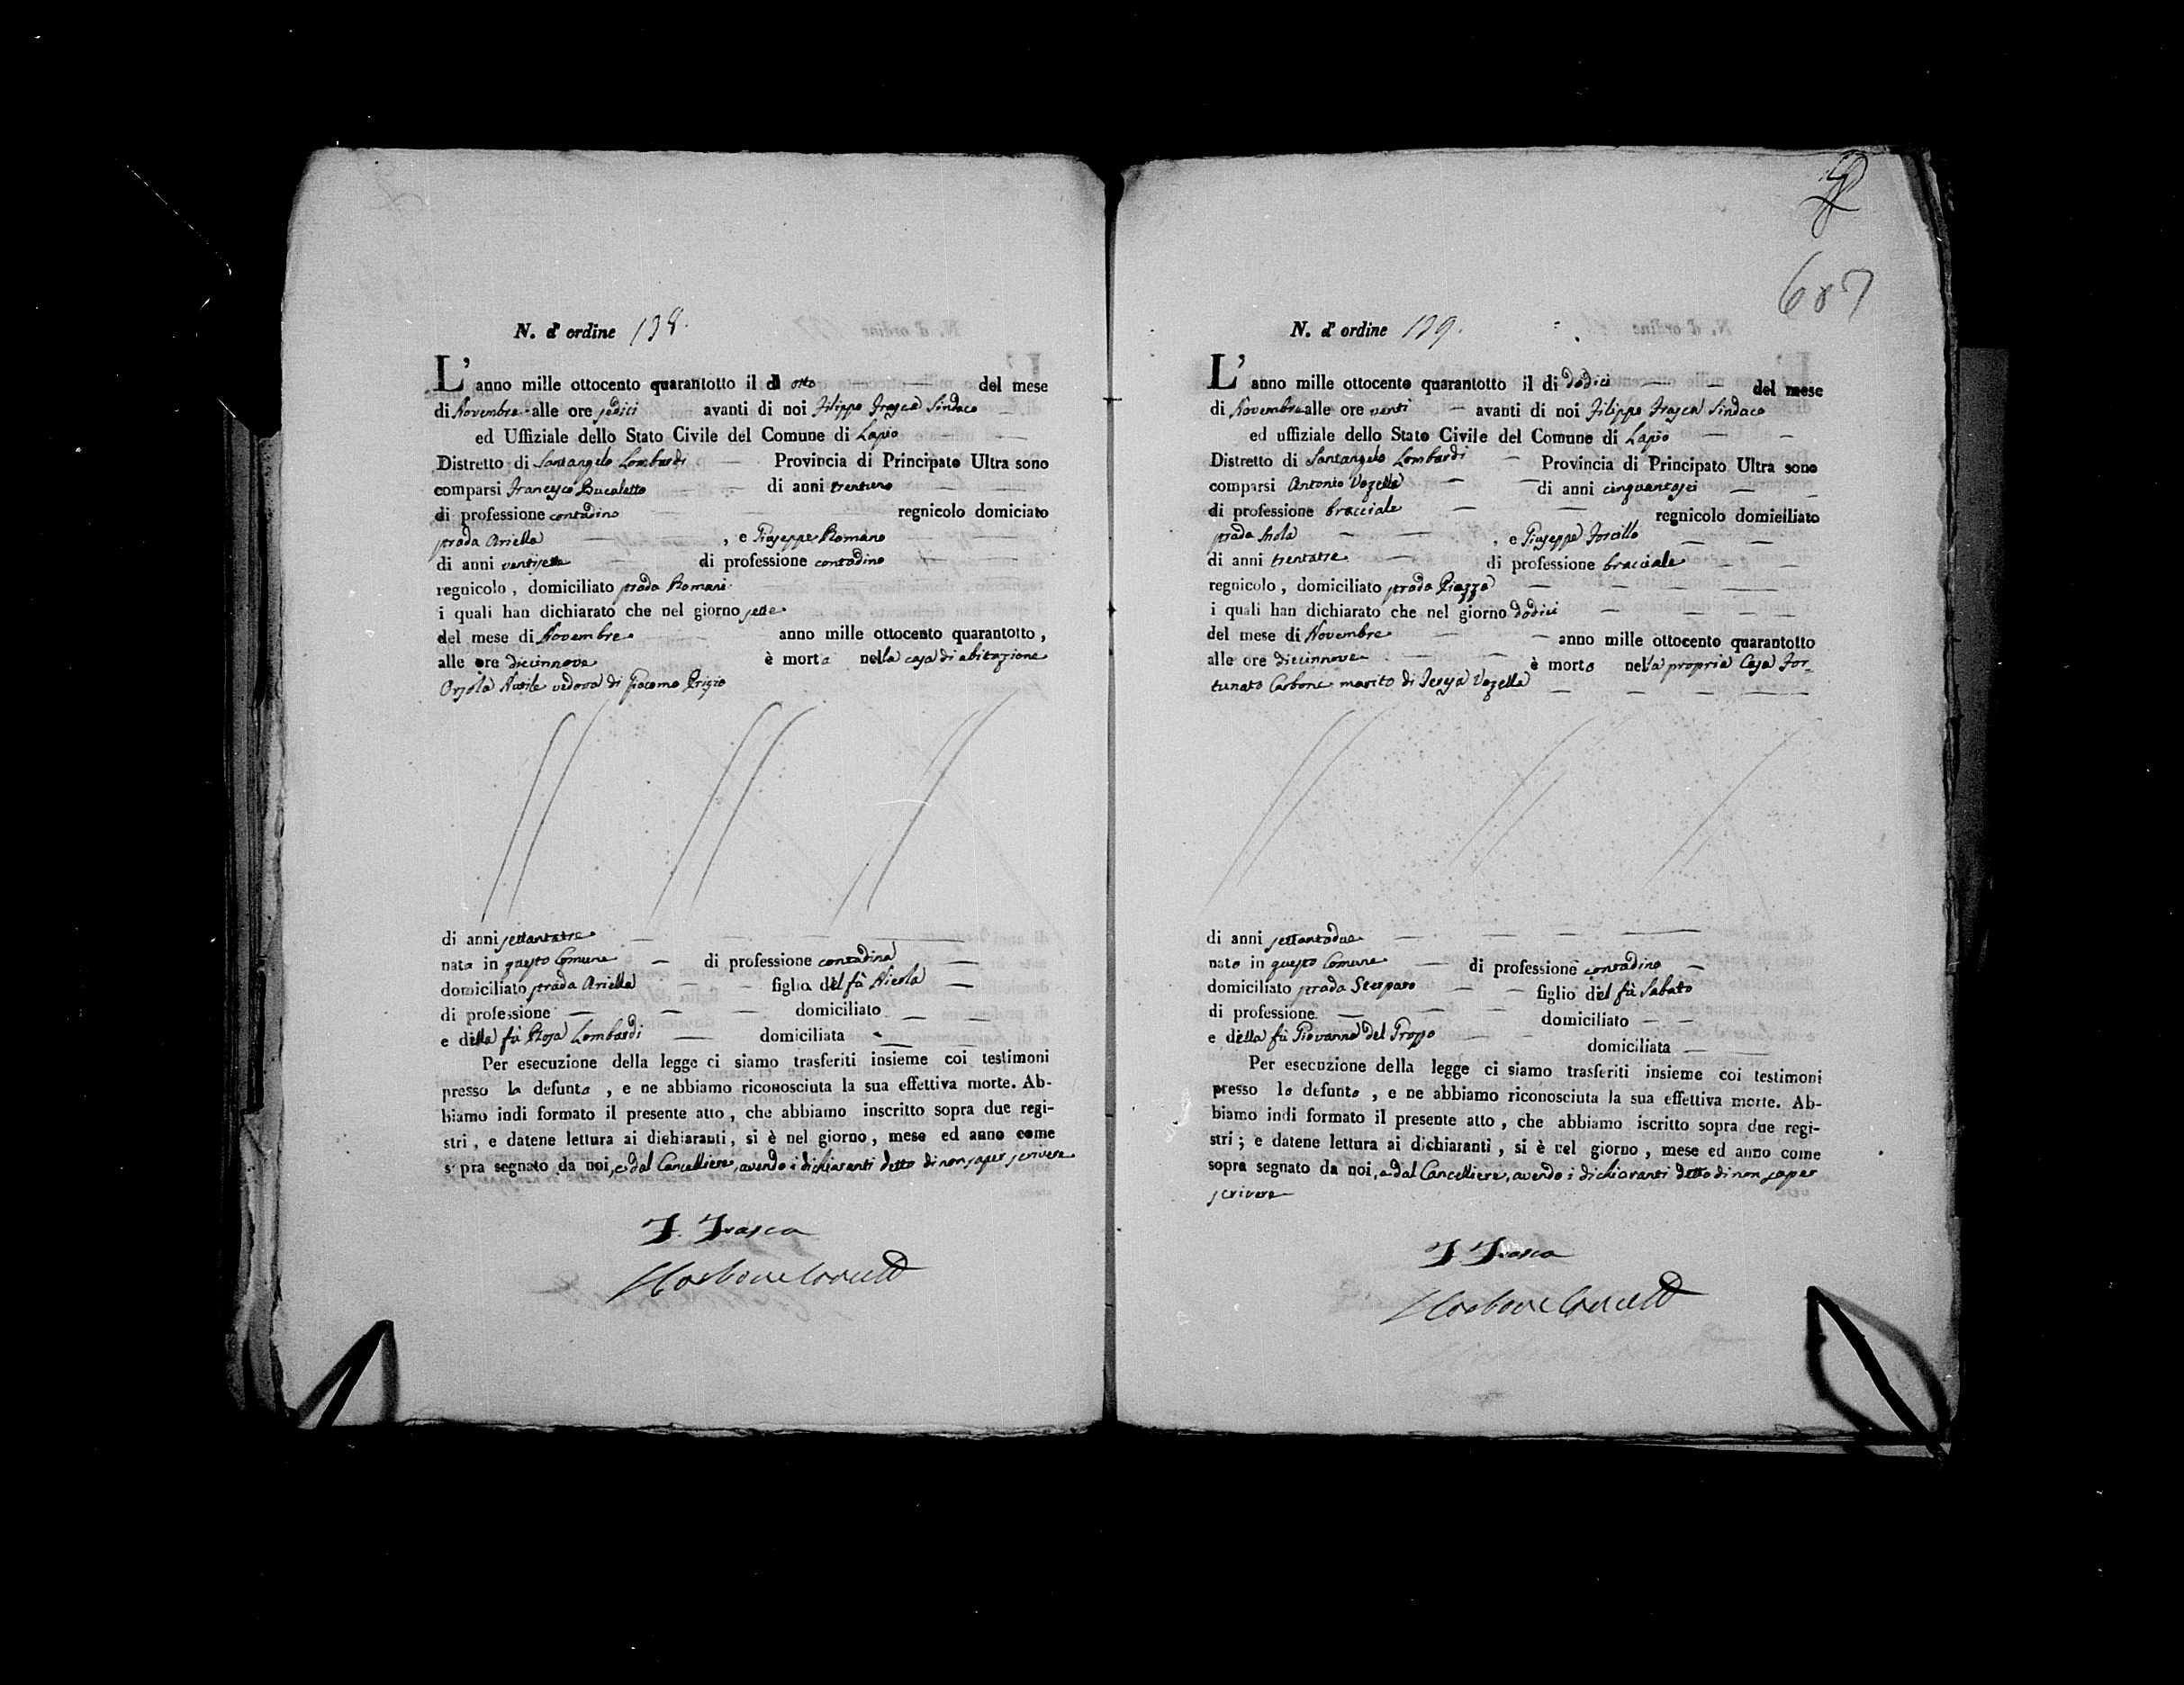 N. d'ordine 138.
L'anno mille ottocento quarantotto il dì otto del mese
di Novembre alle ore sedici avanti di noi Filippo Frasca Sindaco
ed Uffiziale dello Stato Civile del Comune di Lapio
Distretto di Santangelo Lombardi Provincia di Principato Ultra sono
comparsi Francesco Bucaletto di anni trentuno
di professione contadino regnicolo domiciato
strada Ariella , e Giuseppe Romano
di anni ventisette di professione contadino
regnicolo , domiciliato strada Romani
i quali han dichiarato che nel giorno sette
del mese di Novembre anno mille ottocento quarantotto ,
alle ore diecinnove è morta nella casa di abitazione
Orsola vedova di Giacomo Prizio
di anni settantatre
nata in questo Comune di professione contadina
domiciliato strada Ariella figlia del fù Nicola
di professione domiciliato
e della fù Rosa Lombardi domiciliata
Per esecuzione della legge ci siamo trasferiti insieme coi testimoni
presso la defunta , e ne abbiamo riconosciuta la sua effettiva morte. Ab-
biamo indi formato il presente atto , che abbiamo inscritto sopra due regi-
stri , e datene lettura ai dichiaranti, si è nel giorno , mese ed anno come
sopra segnato da noi, e dal Cancelliere, avendo i dichiaranti detto di non saper scrivere
F. Frasca
Carbone
687
N. d'ordine 139.
L'anno mille ottocento quarantotto il di dodici del mese
di Novembre alle ore venti avanti di noi Filippo Frasca Sindaco
ed uffiziale dello Stato Civile del Comune di Lapio
Distretto di Santangelo Lombardi Provincia di Principato Ultra sono
comparsi Antonio Vozella di anni cinquantasei
di professione bracciale regnicolo domiciliato
strada Isola , e Giuseppe Forcillo
di anni trentatre di professione bracciale
regnicolo , domiciliato strada Piazza
i quali han dichiarato che nel giorno dodici
del mese di Novembre anno mille ottocento quarantotto
alle ore diecinnove è morto nella propria Casa For-
tunato Carbone marito di Teresa Vozella
di anni settantadue
nato in questo Comune di professione contadino
domiciliato strada figlio del fù Sabato
di professione domiciliato
e della fù Giovanna del Grosso
domiciliata
Per esecuzione della legge ci siamo trasferiti insieme coi testimoni
presso lo defunto , e ne abbiamo riconosciuta la sua effettiva morte. Ab-
biamo indi formato il presente atto , che abbiamo iscritto sopra due regi-
stri ; e datene lettura ai dichiaranti , si è nel giorno , mese ed anno come
sopra segnato da noi, e dal Cancelliere, avendo i dichiaranti detto di non saper
scrivere
F. Frasca
Carbone